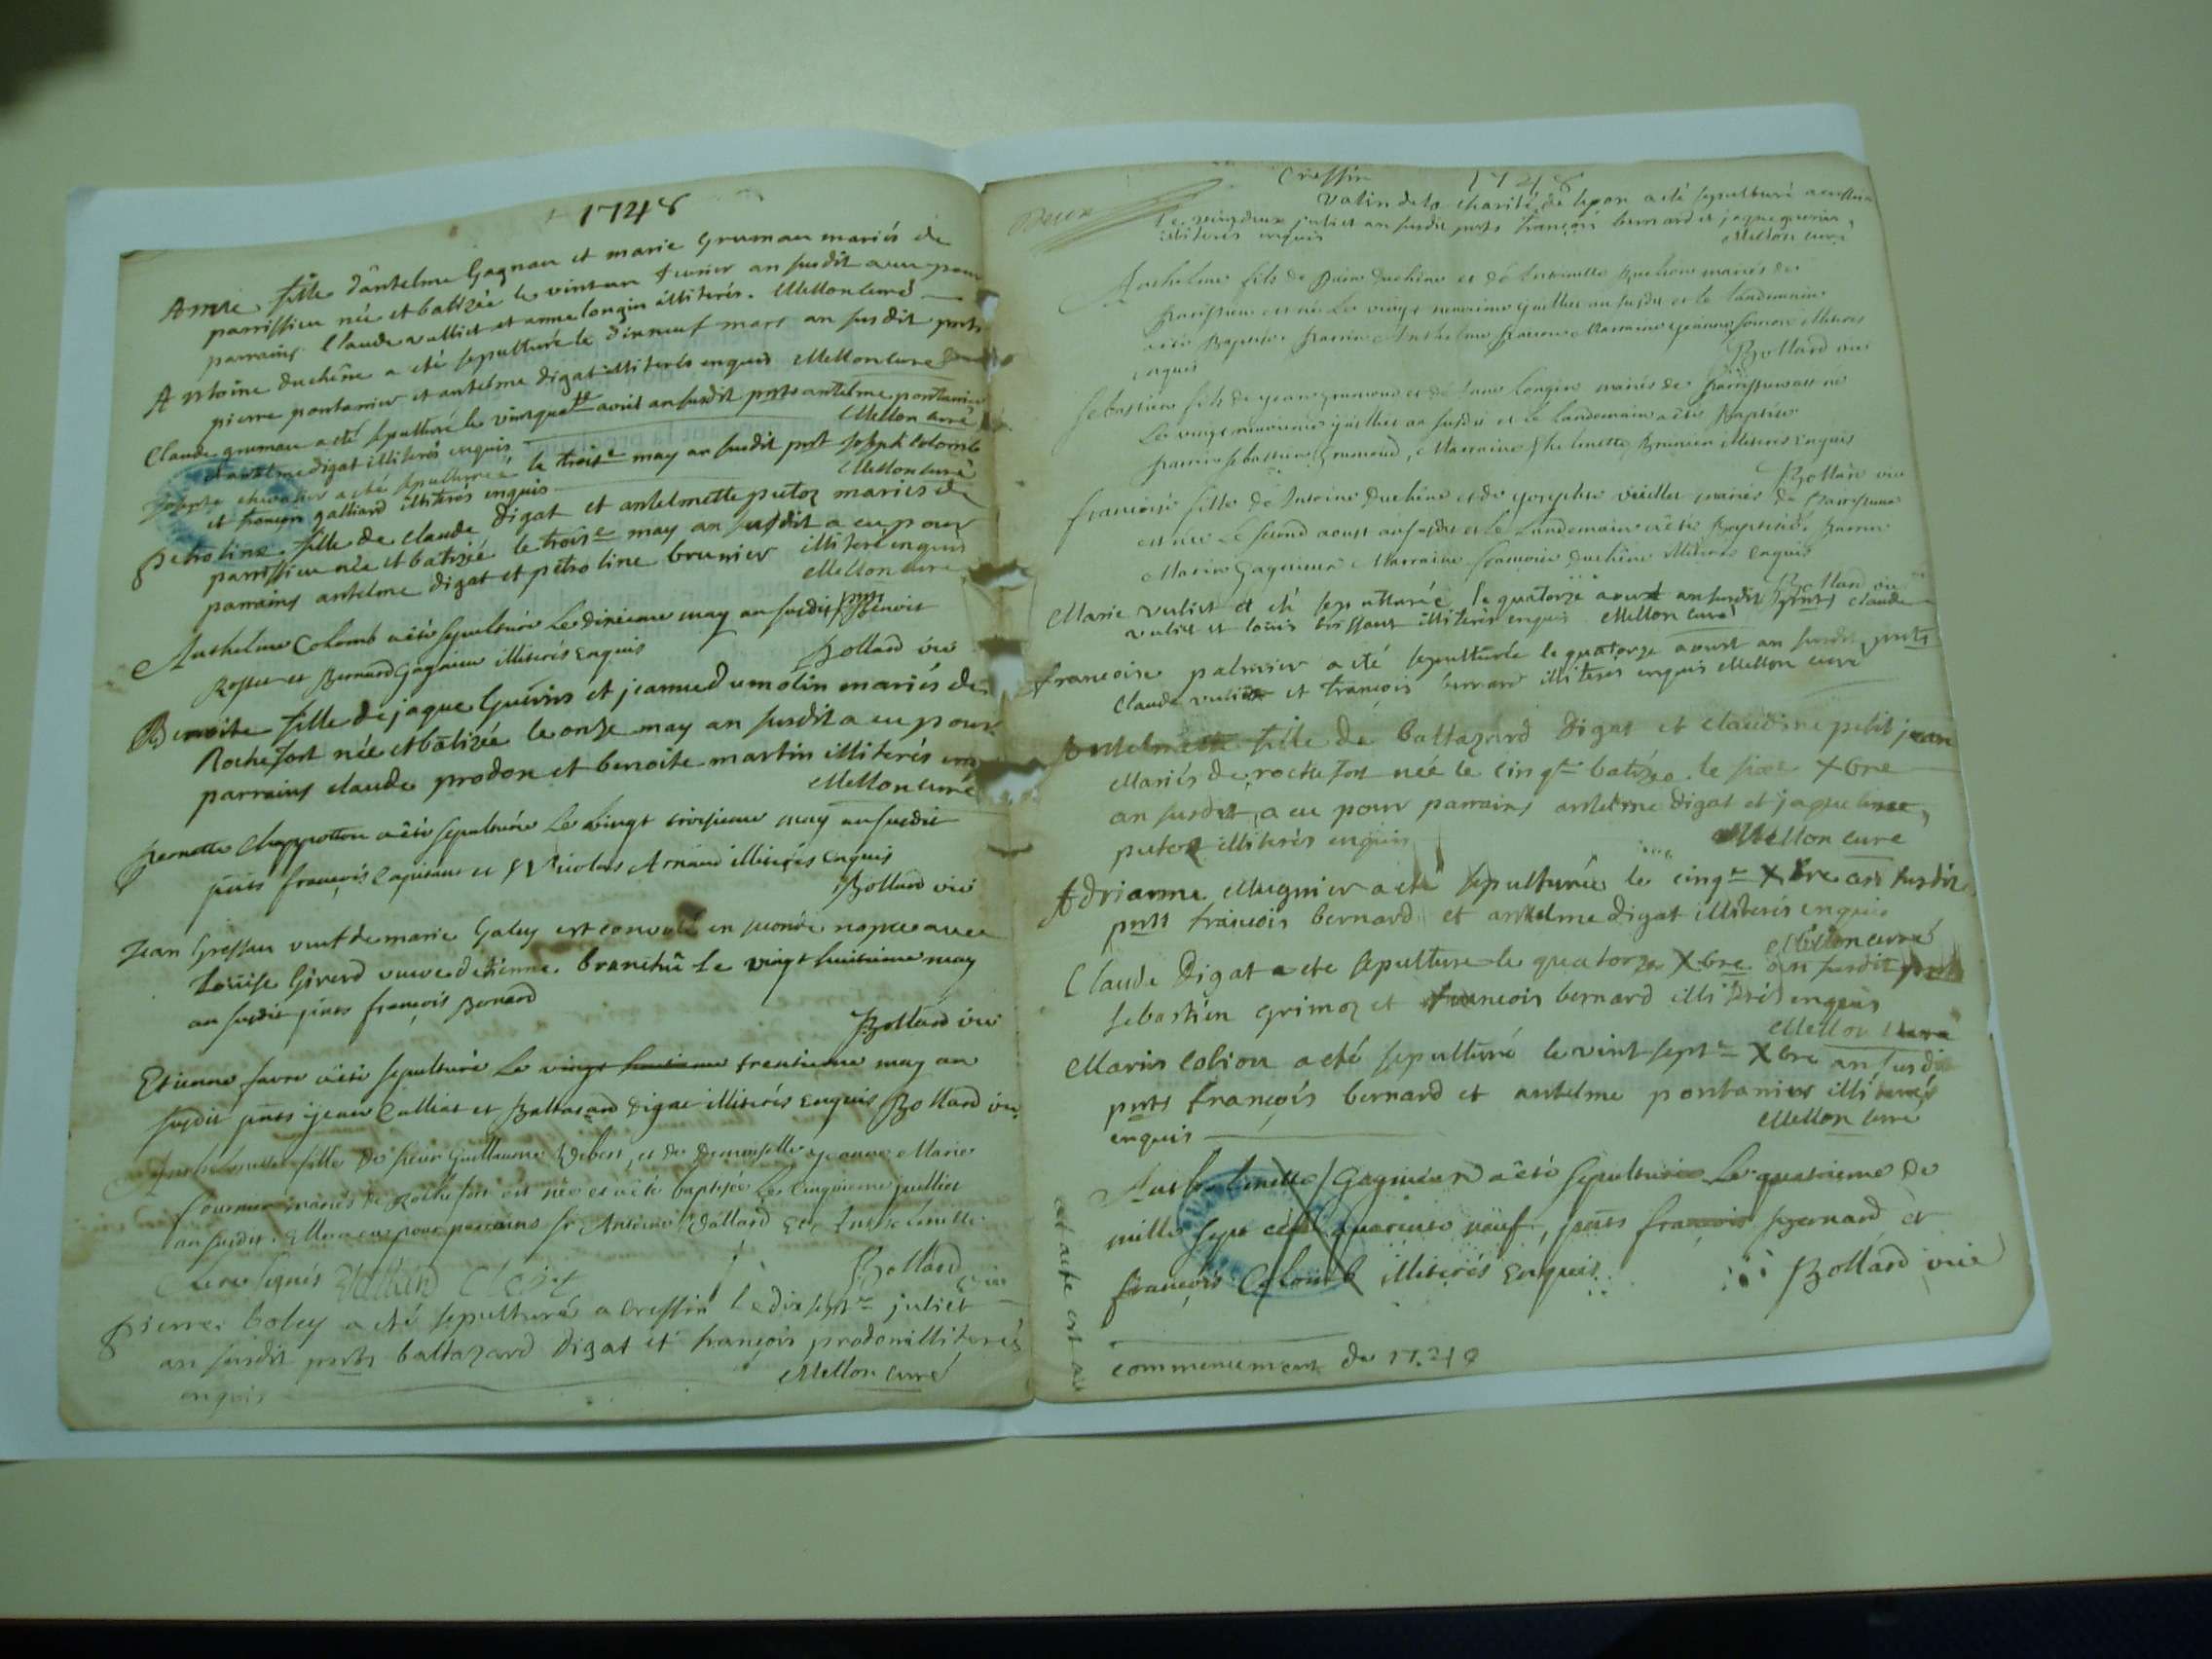 1748
Annie fille d'antelme Gagnau et marie Grumau mariés de
parrissieu née et batizée le vint un fevrier an susdit a eu pour
parrains Claude vulliet et anne longin illiterés. Mellon curé
Antoine duchêne a eté sepulturé le dixneuf mars an susdit pnts
pierre pontanier et antelme digat illiterés enquis Mellon curé
Claude grumau a eté sepulturé le vint quatre avril an susdit pnts antelme pontanier
et antelme digat illiterés enquis Mellon curé
Josepte a eté sepulturée le troise may an susdit pnt Joseph colomb
et françois galliard illiterés enquis Mellon curé
petroline fille de claude digat et antelmette putoz mariés de
parrissieu née et batizée le troise may an susdit a eu pour
parrains antelme digat et petroline brunier illiteré enquis
Mellon curé
Anthelme Colomb a été sepulturé le dixieme may an susdit pnts Benoit
Rosset et Bernard Gagnieu illiterés enquis Bollard vic
Benoite fille de jaque Guérin et jeanne dumolin mariés de
Rochefort née et batizée le onze may an susdit a eu pour
parrains claude prodon et benoite martin illiterés enq
Mellon curé
Jeanette Chappotton a été sepulturée le vingt troisieme may an susdit
pnts françois capitant et Nicolas Arnaud illiterés enquis
Bollard vic
Jean Gressau veuf de marie Galey est convolé en seconde nopce avec
Louise Girerd veuve d'etienne branchû le vingt huitieme may
an susdit pnts françois Bernard
Bollard vic
Etienne favre a été sepulturé le vingt huitieme trentieme may an
susdit pnts jean Culliat et Baltasard digat illiterés enquis Bollard vic
fille de sieur Guillaume debert, et de Demoiselle jeanne Marie
fournier mariés de Rochefort est née et a été baptisée le cinquieme juillet
an susdit. Elle a eu pour parrains sr Antoine Dallard et
signés Bollard vic
pierre boley a eté sepulturé a cressin le dix septe juliet
an susdit pnts baltazard digat et françois prodon illiterés
enquis Mellon curé
Cressin 1748
vatin de la charité de lyon a eté sepulturé a cressin
le vingdeux juliet an susdit pnts françois bernard et jaque guerin
illiterés enquis Mellon curé
Anthelme fils de duchêne et de mariés de
Parissieu est né le vingt neuvieme juillet an susdit et le landemain
a été Baptisé. Parrain Anthelme Marraine illiterés
enquis Bollard vic
Sebastien fils de jean grumaud et de longin mariés de Parissieu est né
le vingt neuvieme juillet an susdit et le landemain a été Baptisé
parrain sebastien Grumaud, Marraine Brunier illiterés enquis
Bollard vic
françoise fille de Antoine duchêne et de josephte vulliet mariés de Parissieu
est née le second aoust an susdit et le landemain a été Baptisée Parrain
Marin Gagnieu Marraine françoise duchêne illiterés enquis
Bollard vic
Marie vuliet et eté sepulturée le quatorze aoust an susdit pnts claude
vuliet et loüis illiterés enquis Mellon curé
francoise palmier a eté sepulturée le quatorze aoust an susdit pnts
Claude vuliet et françois bernard illiterés enquis Mellon curé
Antelmette fille de baltazard digat et claudine petit jean
Mariés de rochefort née le cinqe batizée le sixe Xbre
an susdit, a eu pour parrains antelme digat et jaqueline
putoz illiterés enquis Mellon curé
Adrianne Mugnier a eté sepulturée le cinqe Xbre an susdit
pnts françois bernard et antelme digat illiterés enquis
Mellon curé
Claude digat a eté sepulturé le quatorze Xbre an susdit pnts
sebastien grimoz et francois bernard illiterés enquis
Mellon curé
Marin colion a eté sepulturé le vint septe Xbre an susdit
pnts françois bernard et antelme pontanier illiterés
enquis Mellon curé
Gagnieu a été sepulturée le quatrieme de
mille sept cent quarente neuf, pnts francois Bernard et
françois Colomb illiterés enquis Bollard vic
cet acte est au
commencement de 1749